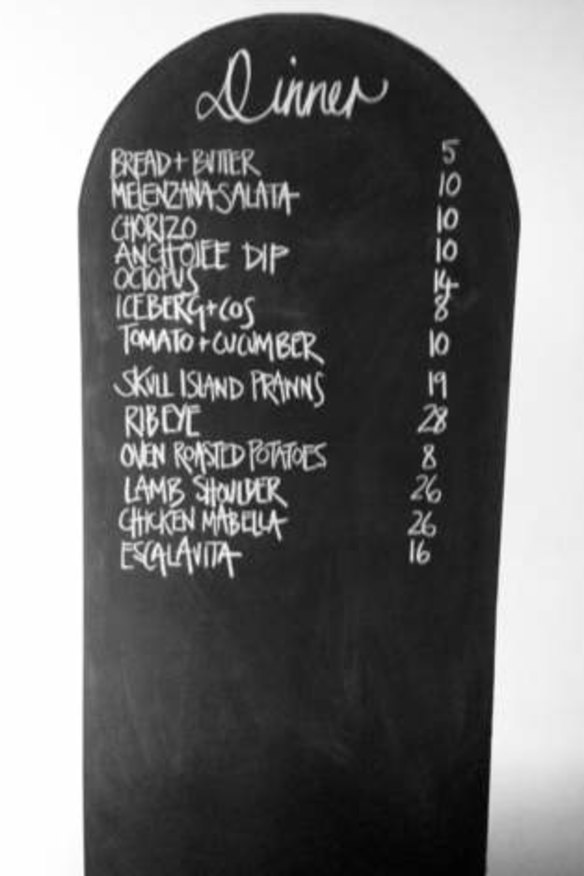 Dinner
BREAD + BUTTER 5
MELENZANA SALATA 10
CHORIZO 10
ANCHOIEE DIP 10
OCTOPUS 14
ICEBERG + COS 8
TOMATO + CUCUMBER 10
SKULL ISLAND PRAWNS 19
RIB EYE 28
OVEN ROASTED POTATOES 8
LAMB SHOULDER 26
CHICKEN MABELLA 26
ESCALAVITA 16